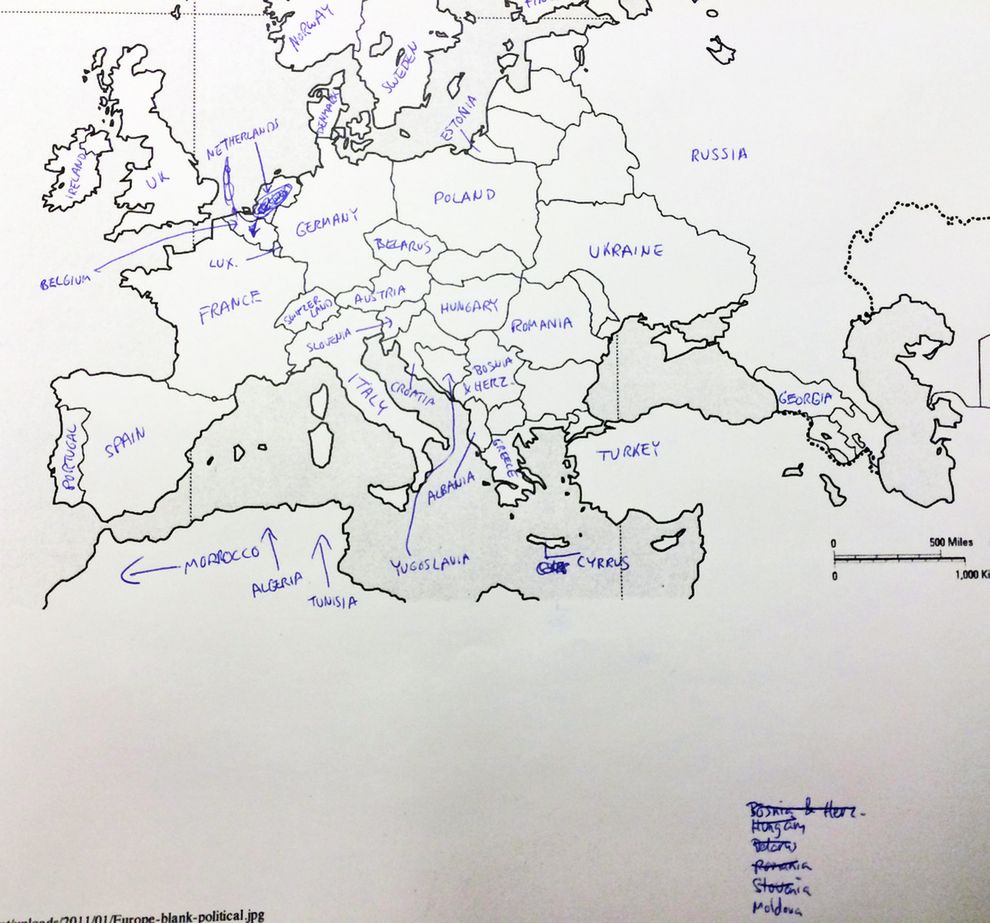 NORWAY
SWEDEN
DENMARK
ESTONIA
NETHERLANDS
RUSSIA
IRELAND
UK
POLAND
GERMANY
BELARUS
UKRAINE
BELGIUM
LUX.
FRANCE
SWITZER
LAND
AUSTRIA
HUNGARY
ROMANIA
SLOVENIA
BOSNIA
& HERZ.
ITALY
CROATIA
GEORGIA
PORTUGAL
SPAIN
GREECE
TURKEY
ALBANIA
0 500 Miles
0 1,000 Ki
MORROCCO
ALGERIA
TUNISIA
YUGOSLAVIA
CYRRUS
Bosnia & Herz.
Hungary
Belarus
Romania
Slovenia
Moldova
t/uploads/2011/01/Europe-blank-political.jpg